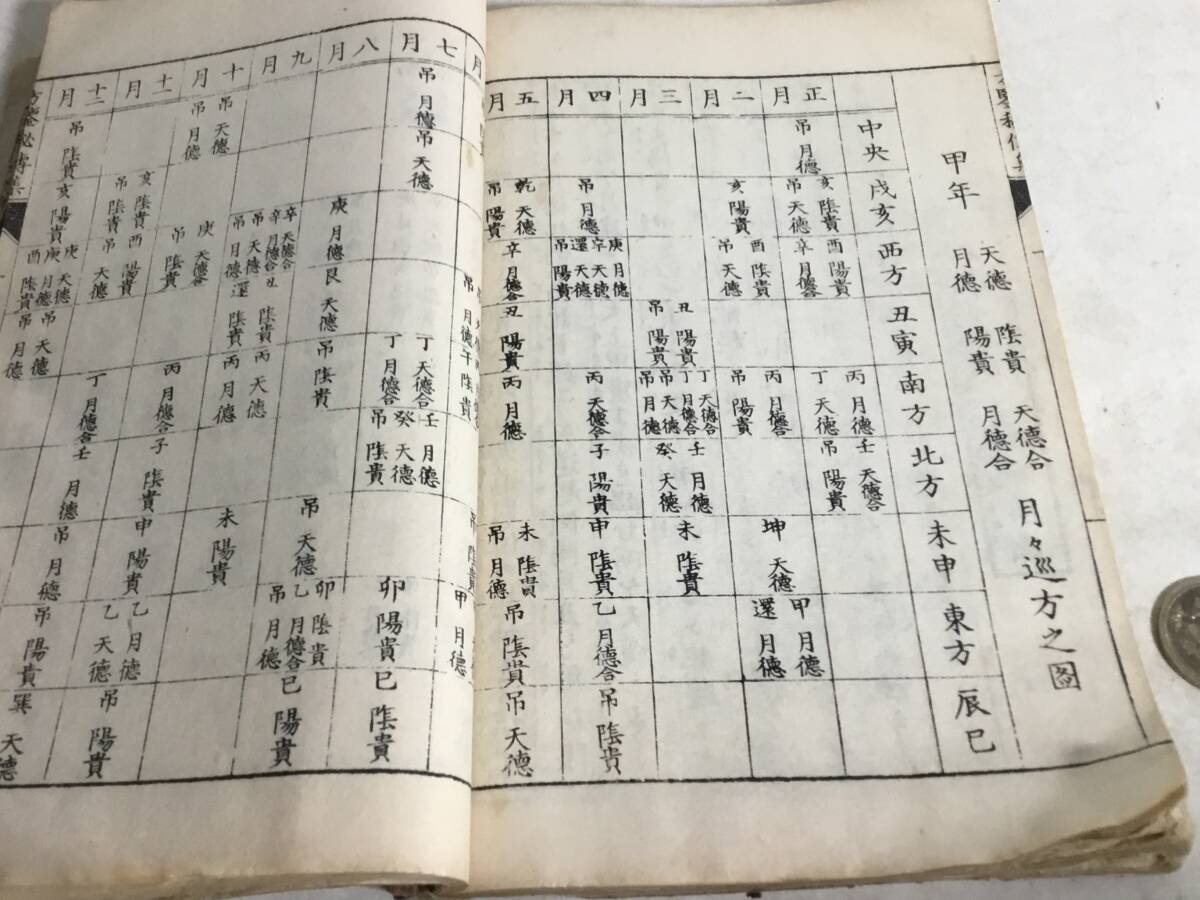 方鑒秘傳集
甲年 天德 月德 陰貴 陽貴 天德合 月德合 月々巡方之図
中央 戌亥 西方 丑寅 南方 北方 未申 東方 辰巳
正月
吊 月德
亥 陰貴
吊 天德
酉 陽貴
辛 月德合
丙 月德
丁 天德
壬 天德合
吊 陽貴
二月
亥 陽貴
酉 陰貴
吊 天德
丙 月德合
吊 陽貴
坤 天德
甲 月德
還 月德
三月
丑 陽貴
吊 陽貴
丁 天德合
丁 月德合
吊 天德
吊 月德
壬 月德
癸 天德
未 陰貴
四月
吊 月德
庚 月德
辛 天德
還 天德
吊 陽貴
丙 天德合
子 陽貴
申 陰貴
乙 月德合
吊 陰貴
五月
乾 天德
吊 陽貴
辛 月德合
丑 陽貴
丙 月德
未 陰貴
吊 月德
吊 陰貴
吊 天德
月
吊 月德
午 陰貴
吊 陰貴
甲 月德
七月
吊 月德
吊 天德
丁 天德合
丁 月德合
壬 月德
癸 天德
吊 陰貴
卯 陽貴
巳 陰貴
八月
庚 月德
艮 天德
吊 陰貴
吊 天德
卯 陰貴
乙 月德合
吊 月德
巳 陽貴
九月
辛 天德合
辛 月德合
吊 天德
吊 月德
丑 陰貴
還 陰貴
丙 天德
丙 月德
未 陽貴
十月
吊 天德
吊 月德
庚 天德合
吊 陰貴
丙 月德合
子 陰貴
申 陽貴
乙 月德
乙 天德
吊 陽貴
十一月
亥 陰貴
吊 陰貴
酉 陽貴
吊 天德
丁 月德合
壬 月德
吊 月德
吊 陽貴
巽 天德
十二月
吊 陰貴
亥 陽貴
庚 天德
庚 月德
酉 陰貴
吊 天德
吊 月德